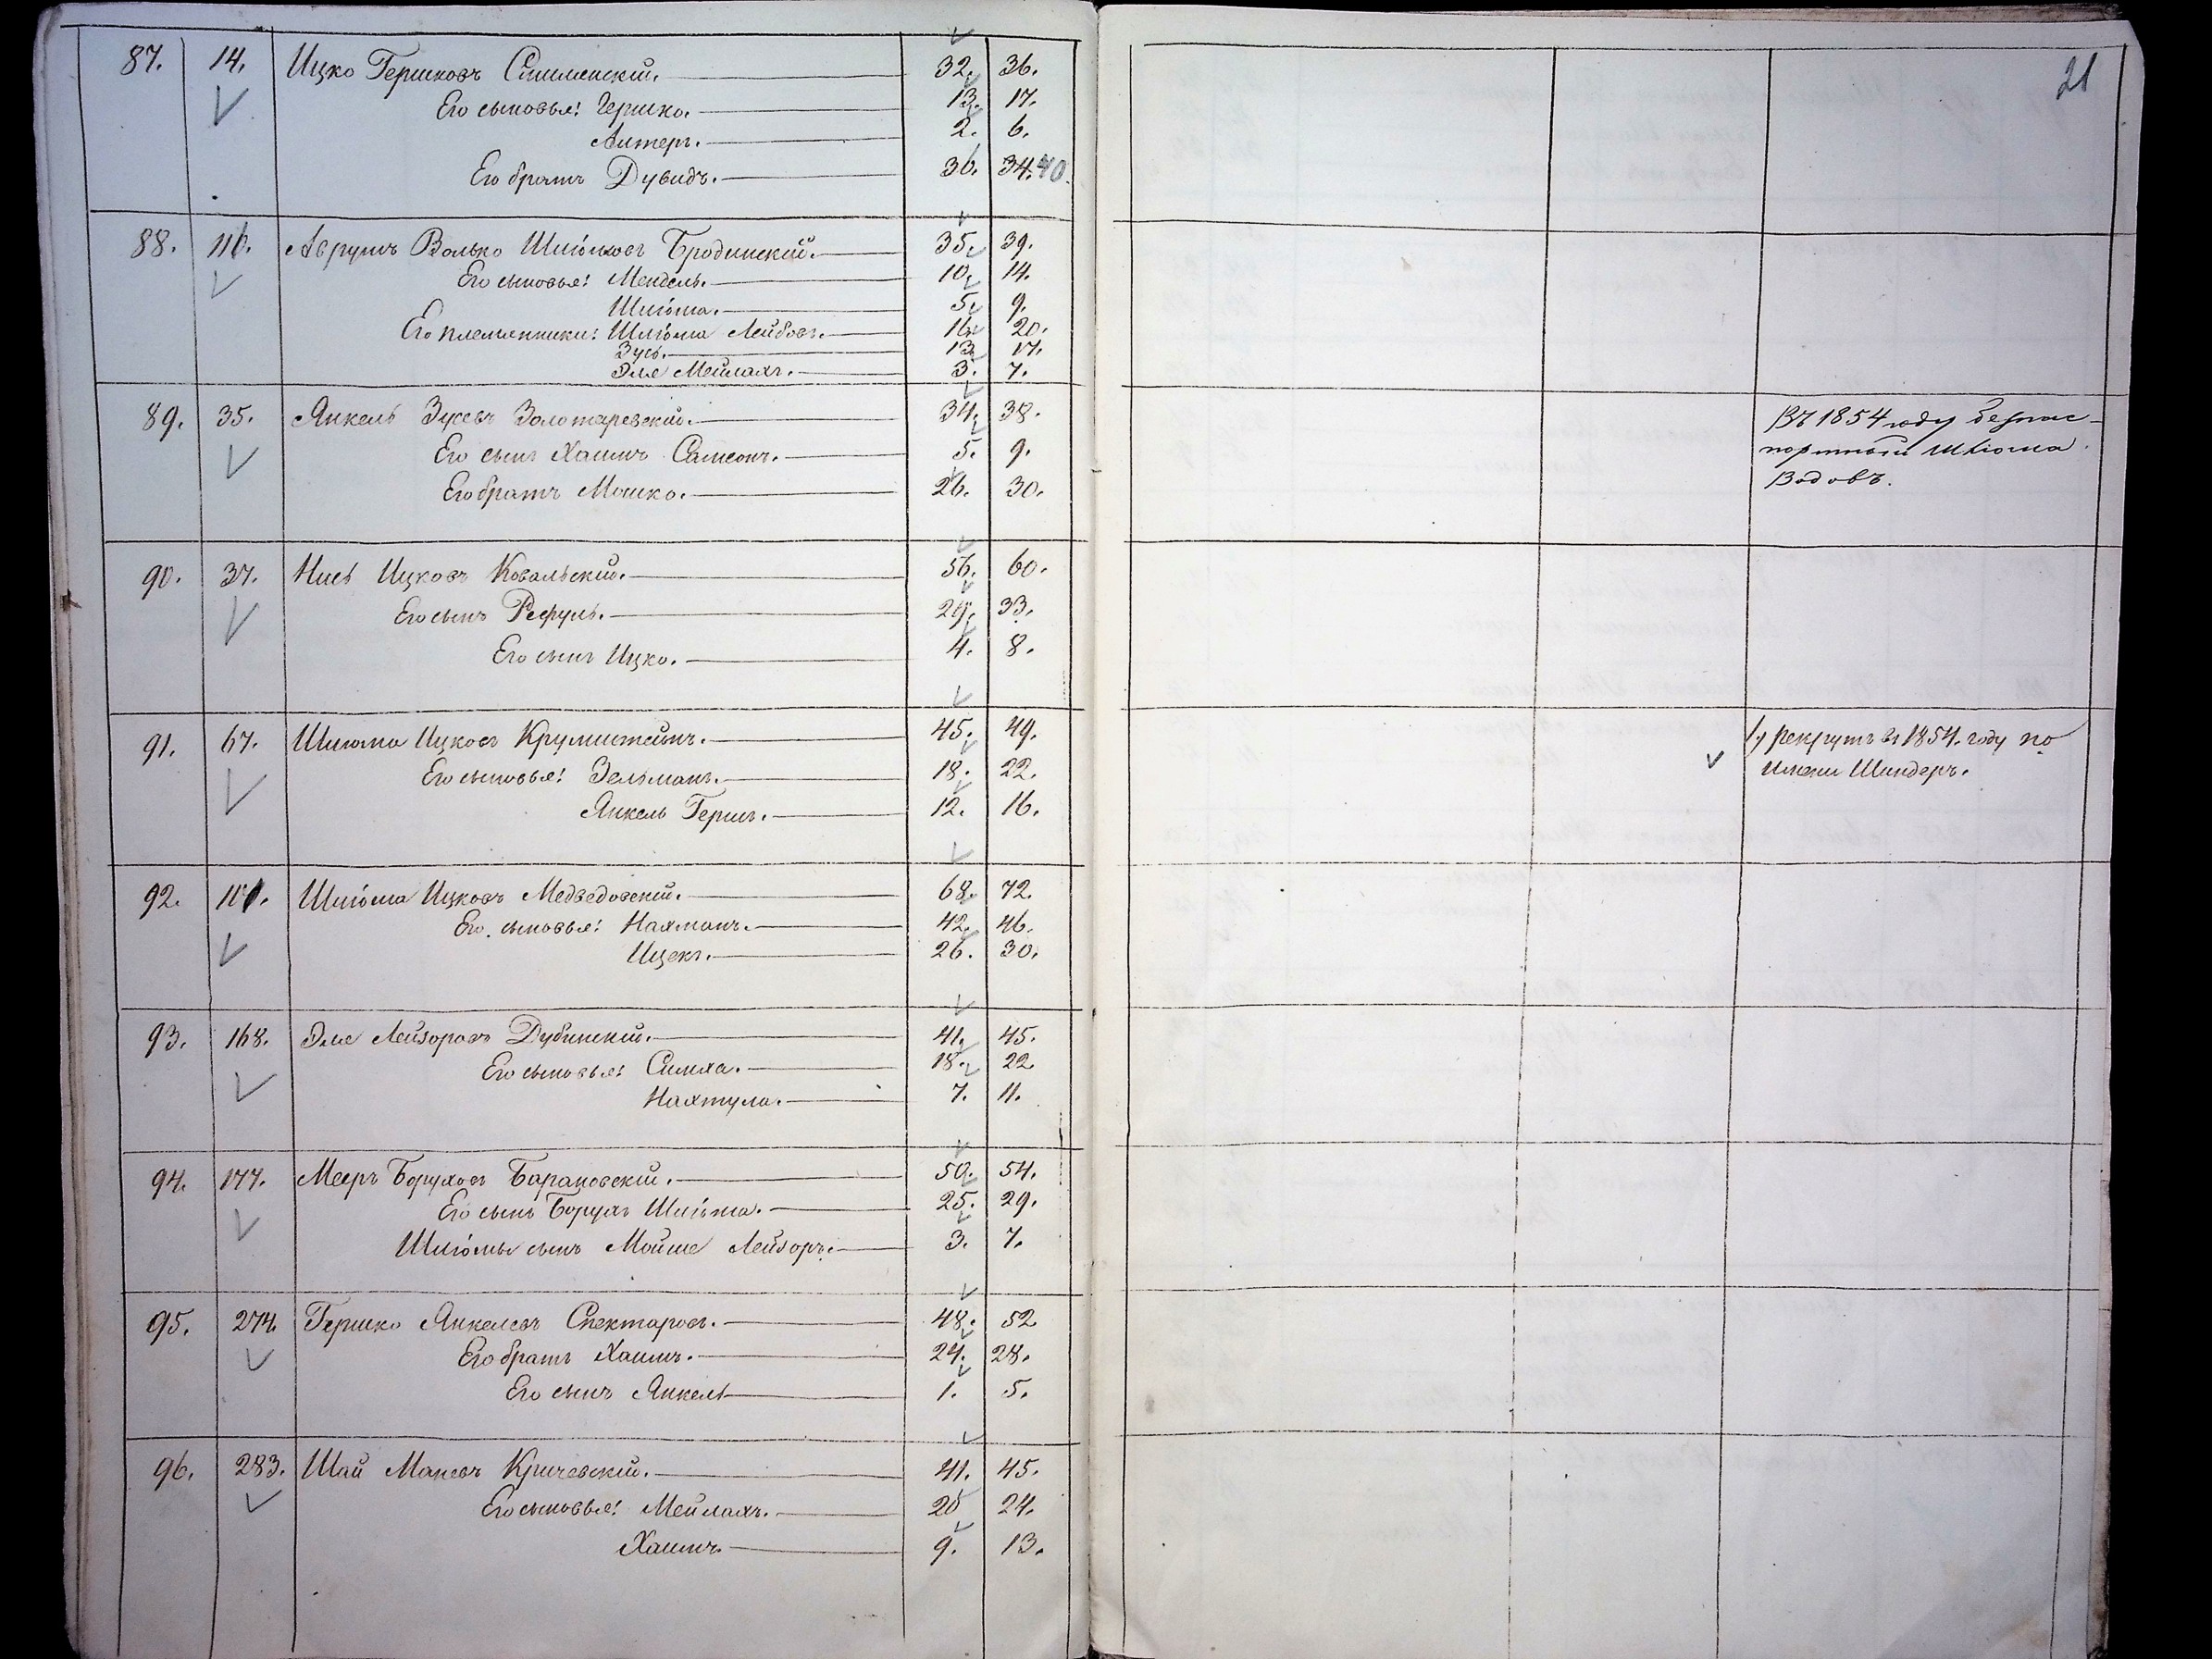 21
87. 14. Ицко Гершковъ Смилянскій. 32. 36.
Его сыновья: Гершко. 13. 17.
Алтеръ. 2. 6.
Его братъ Дувидъ. 30. 34. 40.
88. 116. Аврумъ Волько Шліомовъ Бродинскій. 35. 39.
Его сыновья: Мендель. 10. 14.
Шліома. 5. 9.
Его племянники: Шліома Лейбовъ. 16. 20.
Зусь. 13. 17.
Эле Мейлахъ. 3. 7.
89. 35. Янкель Зусевъ Золотаревскій. 34. 38.
Его сынъ Хаимъ Самсонъ. 5. 9.
Его братъ Мошко. 26. 30.
Въ 1854 году безпас-
портный Шліома
Водовъ.
90. 37. Нись Ицковъ Ковальскій. 56. 60.
Его сынъ Рефуль. 29. 33.
Его сынъ Ицко. 4. 8.
91. 67. Шліома Ицковъ Крумштейнъ. 45. 49.
Его сыновья: Зельманъ. 18. 22.
Янкель Гершъ. 12. 16.
1) рекрутъ въ 1854. году по
имени Шиндеръ.
92. Шліома Ицковъ Медведовскій. 68. 72.
Его сыновья: Нахманъ. 42. 46.
Ицекъ. 26. 30.
93. 168. Эле Лейзоровъ Дубинскій. 41. 45.
Его сыновья: Симха. 18. 22.
Нахтула. 7. 11.
94. 177. Мееръ Боруховъ Барановскій. 50. 54.
Его сынъ Борухъ Шліома. 25. 29.
Шліомы сынъ Мойше Лейзоръ. 3. 7.
95. 274. Гершко Янкелевъ Спектаровъ. 48. 52
Его братъ Хаимъ. 24. 28.
Его сынъ Янкель 1. 5.
96. 283. Шай Маневъ Кричевскій. 41. 45.
Его сыновья: Мейлахъ. 20 24.
Хаимъ. 9. 13.